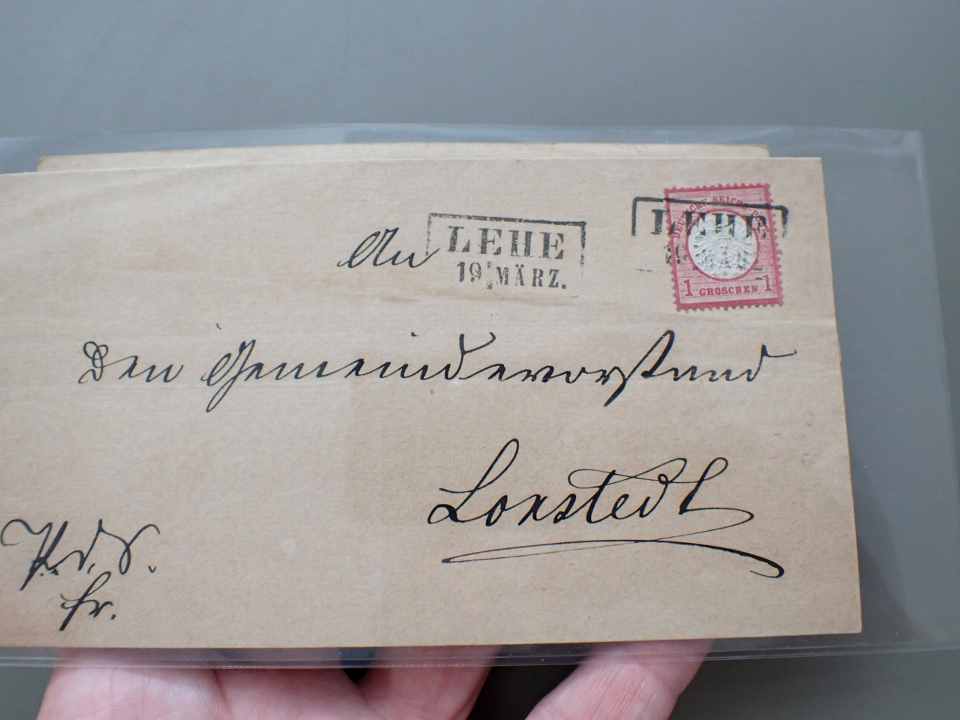 LEHE
19 MÄRZ.
LEHE
DEUTSCHE REICHS-POST
1 GROSCHEN 1
An
den Gemeindevorstand
Loxstedt
P. d. S.
fr.